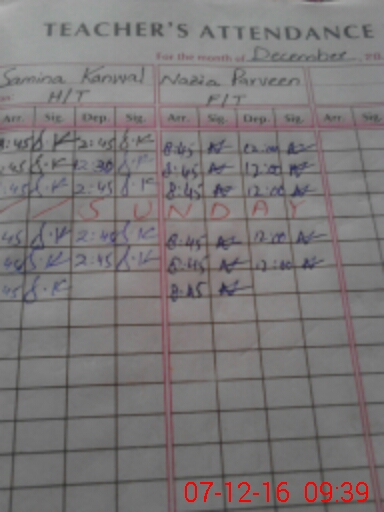 TEACHER'S ATTENDANCE
For the month of December
Samina Kanwal Nazia Parveen
H/T F/T
Arr. Sig. Dep. Sig. Arr. Sig. Dep. Sig. Arr. Sig.
:45 S.K 2:45 S.K 8:45 12:00
:45 S.K 12:30 S.K 8:45 12:00
:45 S.K 2:45 S.K 8:45 12:00
S U N D A Y
:45 S.K 2:45 S.K 8:45 12:00
S.K 2:45 S.K 8:45 12:00
45 S.K 8:45
07-12-16 09:39